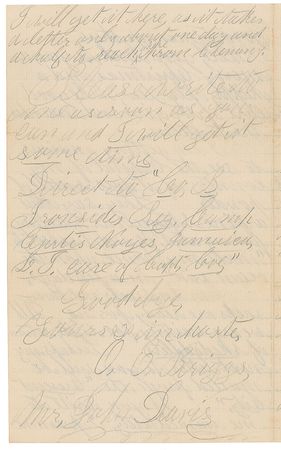 I will get it here, as it takes
a letter only about one day and
a half to reach from
Please write to
me as soon as you
can and I will get it
some time
Direct to "Co. B
Ironsides Reg. Camp
Curtis Noyes, Jamaica,
L.I. care of Capt. Coe"
Good bye,
Yours in haste,
O. O. Briggs
Mr. John Davis